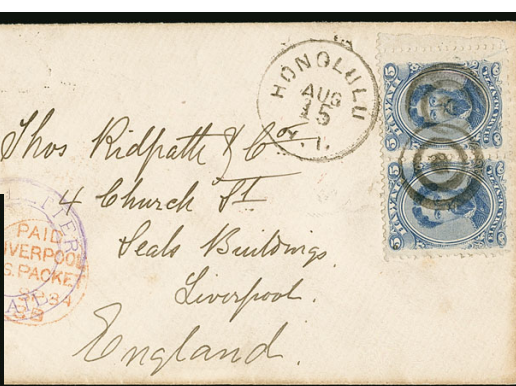 HONOLULU
AUG
15
H.I.
Thos Ridpath & Co
4 Church St
Seals Buildings.
Liverpool.
England.
PAID
LIVERPOOL
PACKET